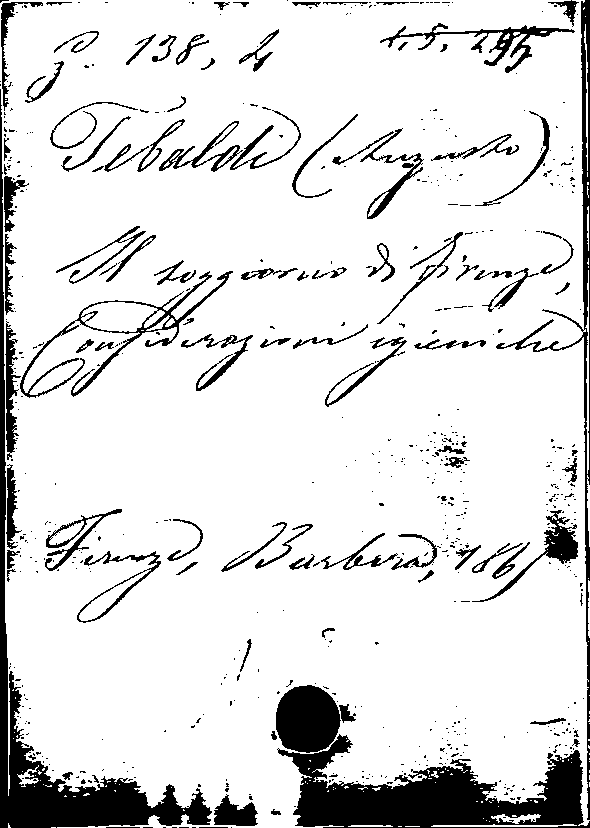 Z. 138, 4
1. 5. 295
Tebaldi (Augusto)
Il soggiorno di Firenze,
Considerazioni igieniche
Firenze, Barbera, 1865